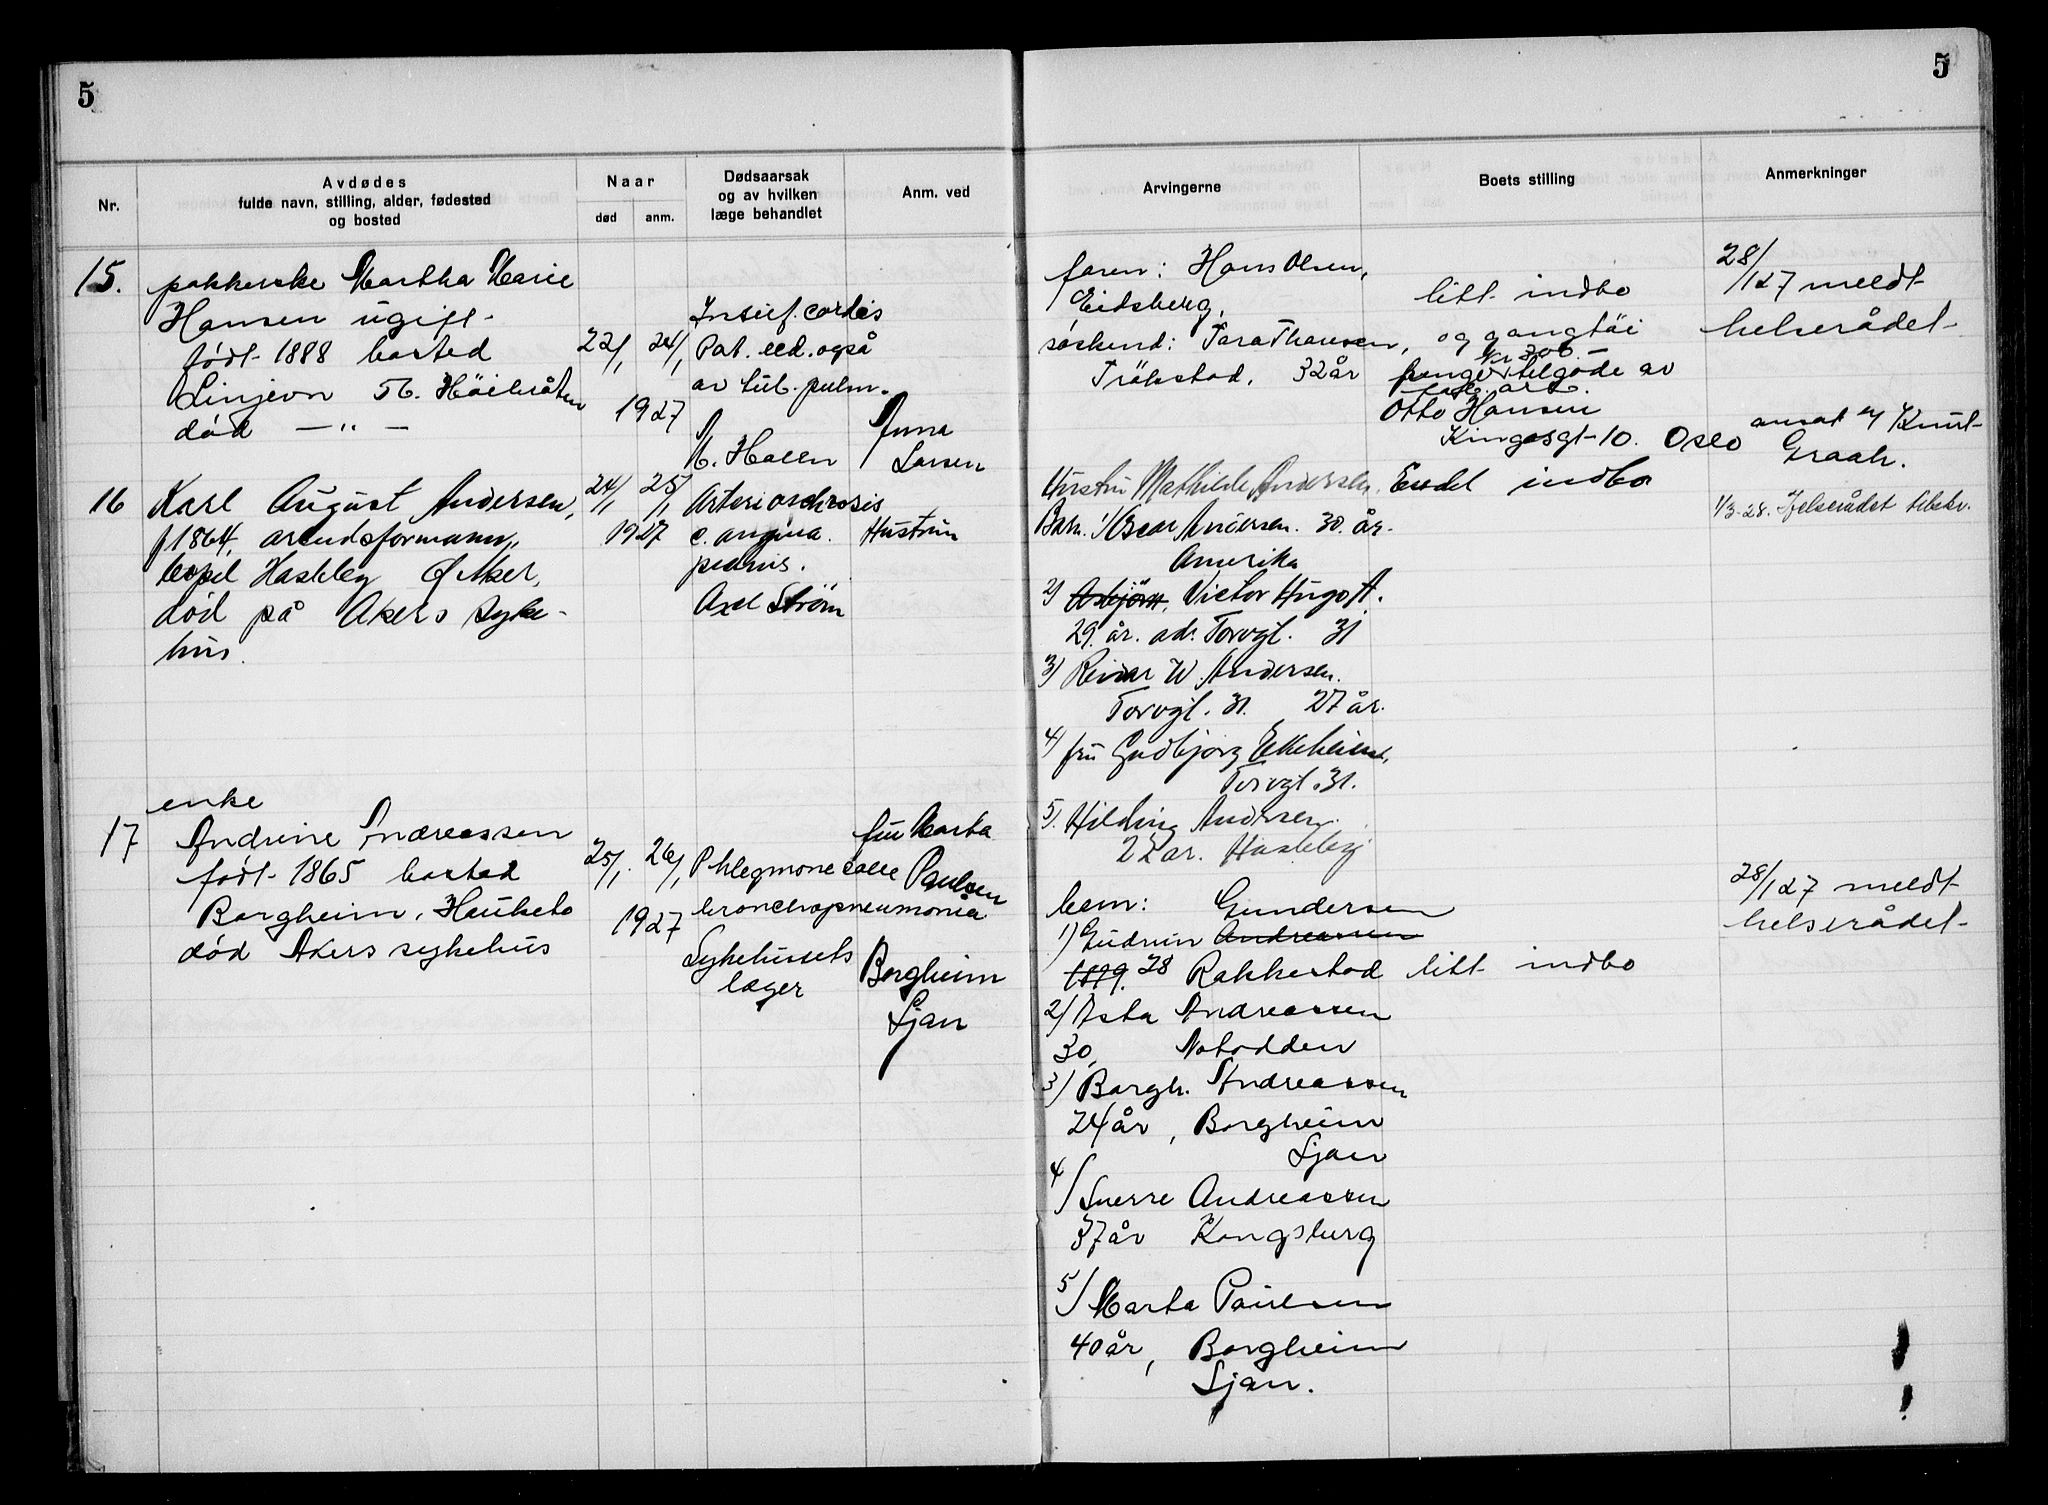 5
5
Nr.
Avdødes
fulde navn, stilling, alder, fødested
og bosted
Naar
død
anm.
Dødsaarsak
og av hvilken
læge behandlet
Anm. ved
Arvingerne
Boets stilling
Anmerkninger
15.
pakkerske Martha Marie
Hansen ugift
født 1888 bosted
Linjevn 56. Høibråten
død — " —
22/1 24/1
1927
Insuf. cordis
Pat. led. også
av tub. pulm.
Anna
Larsen
faren: Hans Olsen,
Eidsberg,
søskend:
Trökstad, 32 år
litt indbo
og gangtöi
penge tilgode av
Otto Hansen
Kingosgt 10. Oslo
28/1 27 meldt
helserådet
ansat
Graah.
16
Karl August Andersen,
f 1864, arendsformann,
bopel Hasleby Ø Aker,
død på Akers syke-
hus.
24/1 25/1
1927
Arterioschrosis
c. angina
Axel Strøm
Hustrun
Hustru Mathilde Andersen.
Barn. 1/ Oscar Andersen. 30. år.
Amerika
2) Asbjörn, Victor Hugo A.
29. år. ad. Torvgt. 31
3) Reidar W. Andersen.
Torvgt. 31. 27 år.
4) fru Gudbjørg
Torvgt. 31.
5. Hilding Andersen.
22 ar. Hasleby
Endel indbo
1/3-28. Helserådet tilskr.
17
enke
Andrine Andreassen
født 1865 bosted
Borgheim, Hauketo
død Akers sykehus
25/1. 26/1
1927
Phlegmone colli
bronchopneumonia
Sykehussets
læger
fru Marta
Paulsen
Borgheim
Ljan
barn: Gundersen
1) Gudrun Andreassen
1899. 28 Rakkestad
2) Asta Andreassen
30, Notodden
3) Borgh. Andreassen
24 år, Borgheim
Ljan
4/ Sverre Andreassen
37 år Kongsberg
5/ Marta Paulsen
40 år, Borgheim
Ljan.
litt indbo
28/1 27 meldt
helserådet